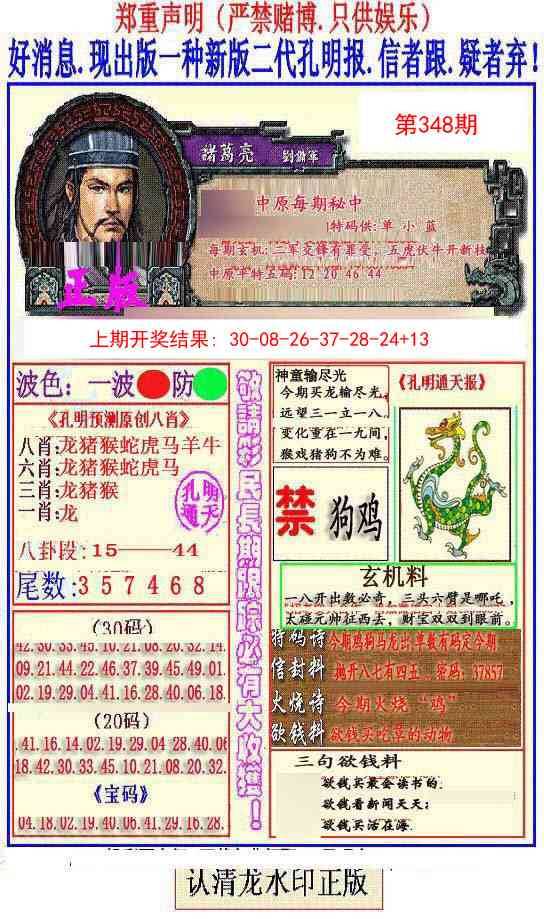 郑重声明（严禁赌博.只供娱乐）
好消息.现出版一种新版二代孔明报.信者跟.疑者弃！
第348期
諸葛亮 劉備軍
中原每期秘中
特码供:单 小 蓝
每期玄机:三军交锋有罪受，五虎伏牛开新枝
中原半特五码:12 20 46 44
正版
上期开奖结果: 30-08-26-37-28-24+13
波色：一波 防
《孔明预测原创八肖》
八肖:龙猪猴蛇虎马羊牛
六肖:龙猪猴蛇虎马
三肖:龙猪猴
一肖:龙
孔明
通天
八卦段:15——44
尾数:3 5 7 4 6 8
(30码)
42.30.33.45.10.21.08.20.32.14.
09.21.44.22.46.37.39.45.49.01.
02.19.29.04.41.16.28.40.06.18.
(20码)
.41.16.14.02.19.29.04.28.40.06
18.42.30.33.45.10.21.08.20.32.
《宝码》
04.18.02.19.40.06.41.29.16.28.
敬請彩民長期跟踪必有大收獲！
神童输尽光
今期买龙输尽光，
远望三一立一八。
变化重在一九间，
猴戏猪狗不为难。
《孔明通天报》
禁 狗鸡
玄机料
一八开出数必奇，三头六臂是哪吒，
太碰元帅征西去，财宝双双到眼前。
特码诗 今期鸡狗马龙出单数有码定今期
信封料 抛开八七有四五 密码：37857
火烧诗 今期火烧“鸡”
欲钱料 欲钱买吃草的动物
三句欲钱料
欲钱买最会读书的.
欲钱看新闻天天；
欲钱买活在海.
认清龙水印正版